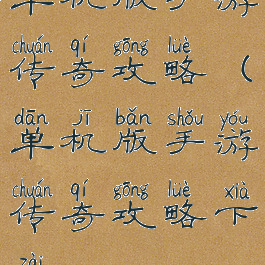 单机版手游
chuán qí gōng lüè
传奇攻略（
dān jī bǎn shǒu yóu
单机版手游
chuán qí gōng lüè xià
传奇攻略下
zài